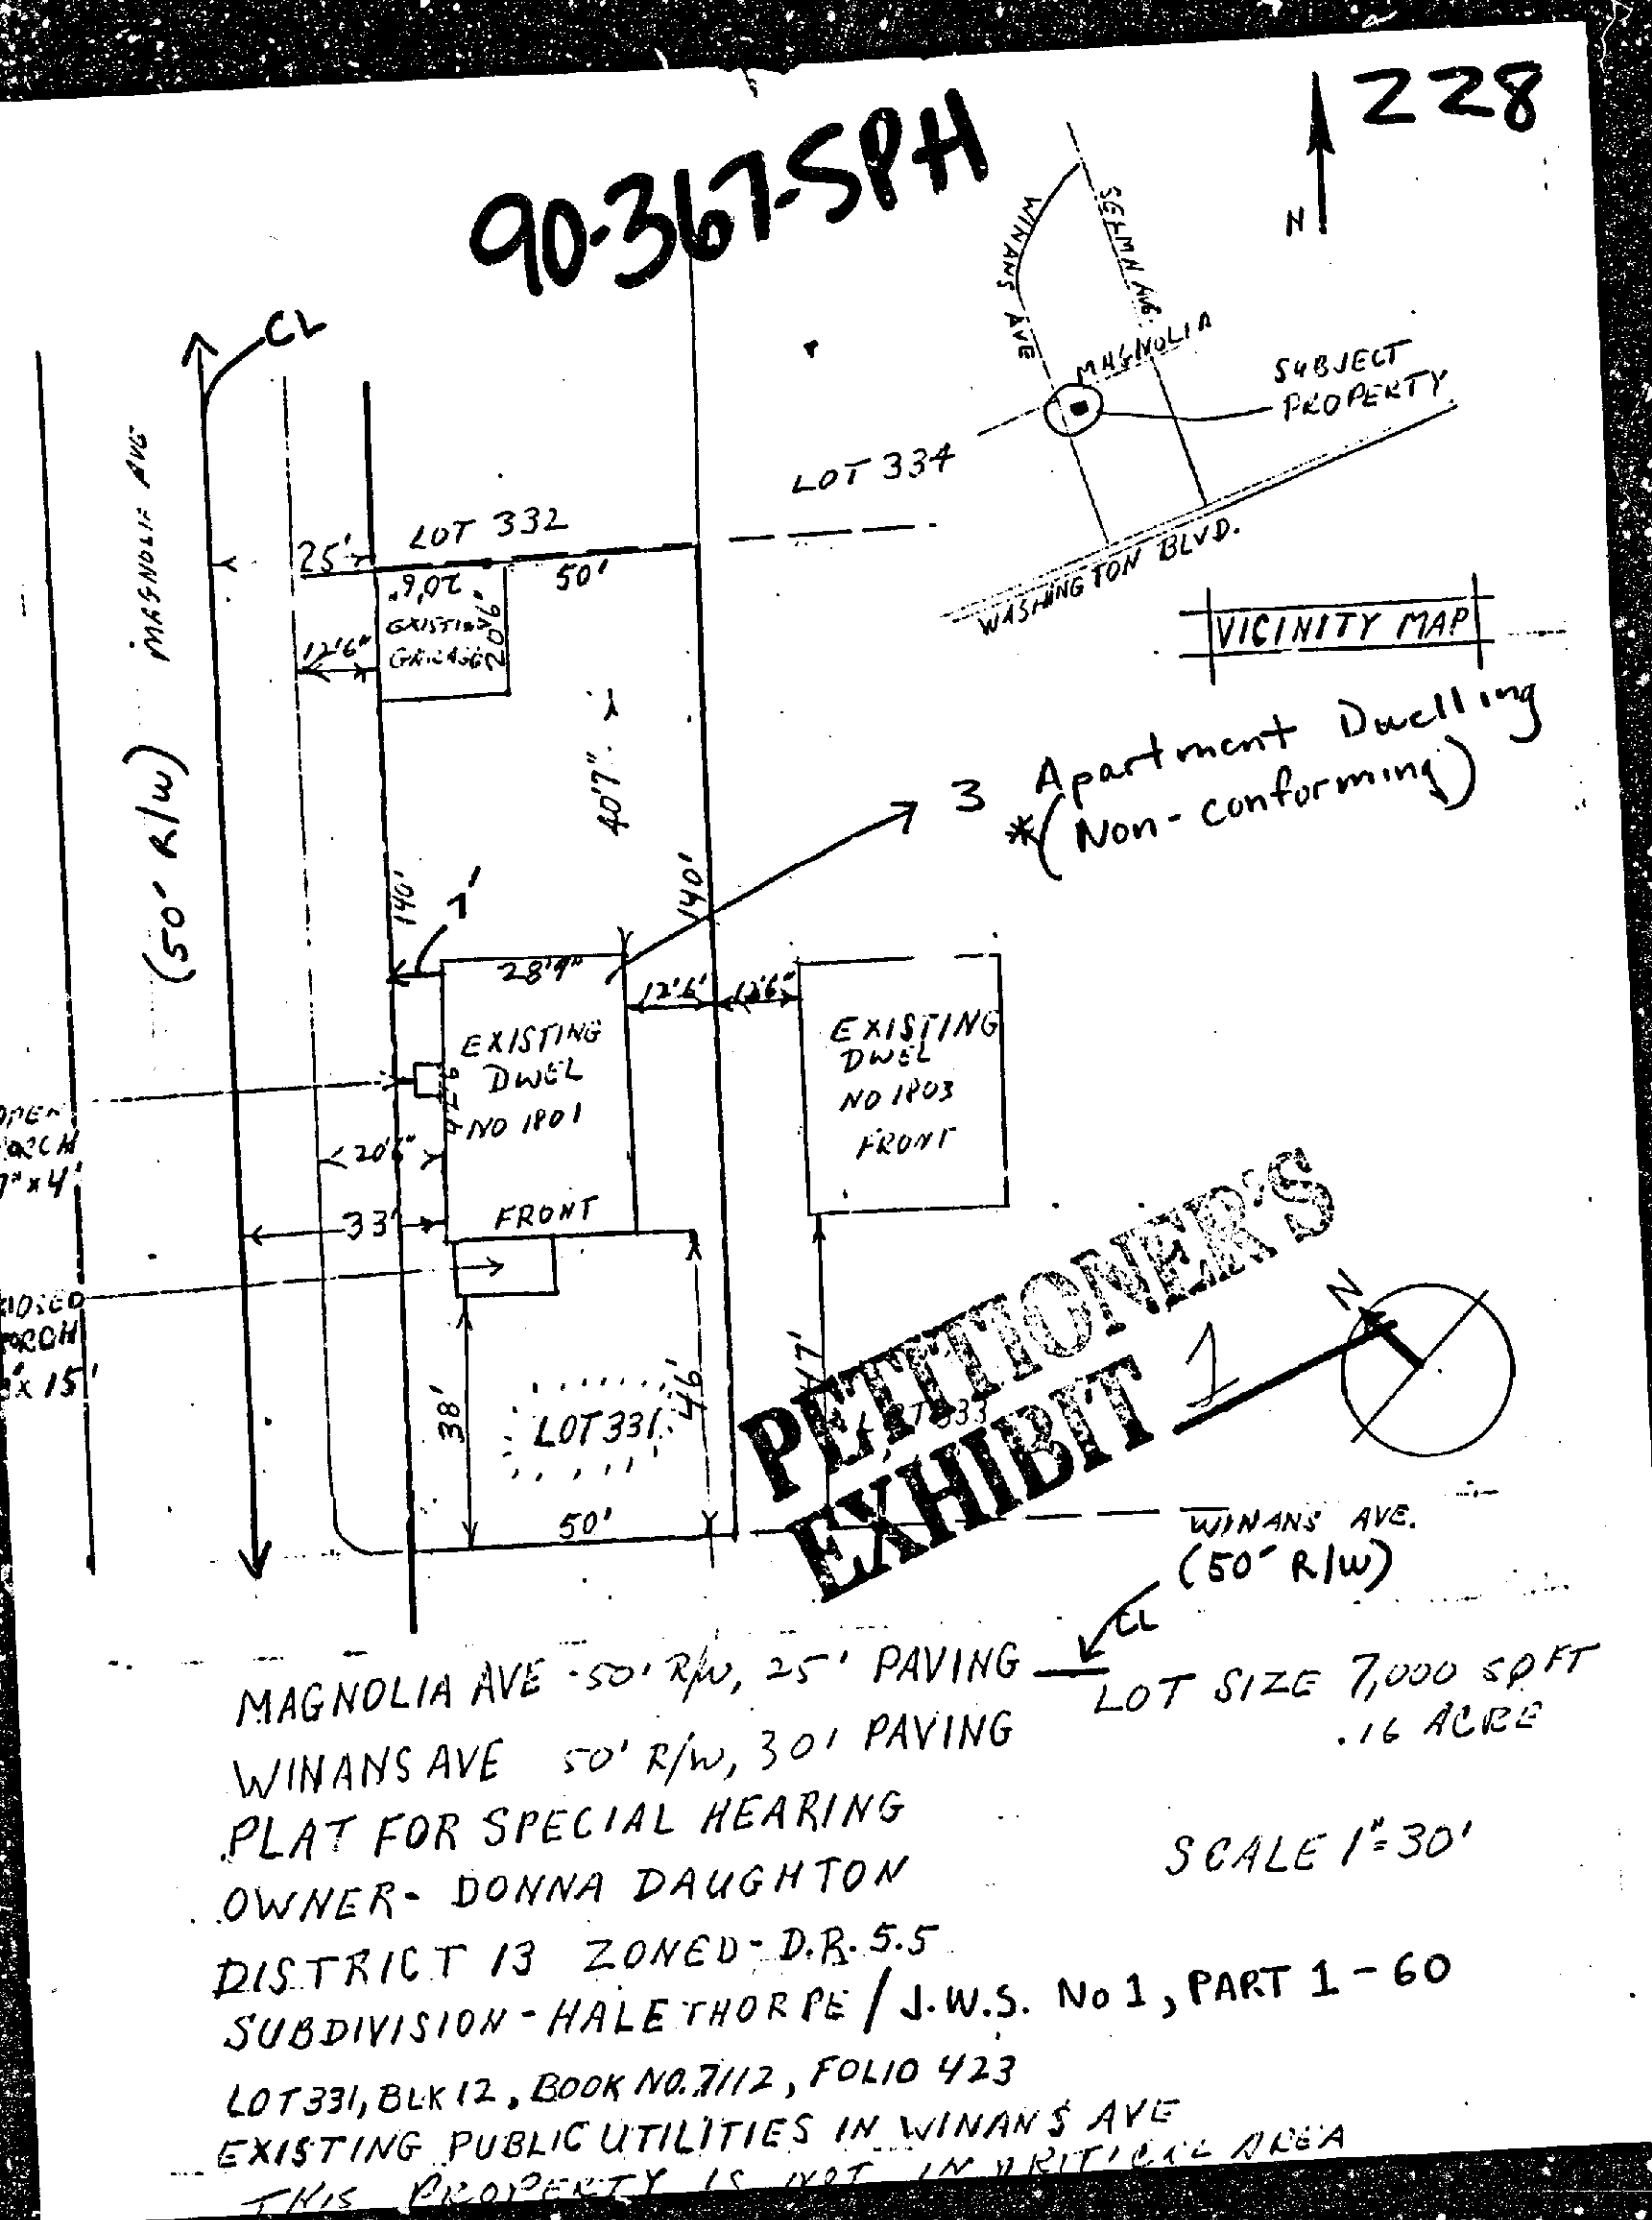 228
90-367-SPH
N
WINANS AVE
SELMN AVE.
MAGNOLIA
SUBJECT
PROPERTY
WASHINGTON BLVD.
VICINITY MAP
CL
MAGNOLIA AVE
(50' R/W)
LOT 332
LOT 334
25'
50'
20'6"
EXISTING
GARAGE
20'6"
12'6"
40'7"
3 Apartment Dwelling
*(Non-conforming)
140'
140'
7'
28'9"
12'6"
12'6"
EXISTING
DWEL
NO 1801
FRONT
EXISTING
DWEL
NO 1803
FRONT
OPEN
PORCH
20'6"
33'
PORCH
x 15'
38'
46'
LOT 331
50'
PETITIONER'S
EXHIBIT 1
N
WINANS AVE.
(50' R/W)
CL
MAGNOLIA AVE - 50' R/W, 25' PAVING
LOT SIZE 7,000 SQ FT
.16 ACRE
WINANS AVE 50' R/W, 30' PAVING
PLAT FOR SPECIAL HEARING
SCALE 1"=30'
OWNER- DONNA DAUGHTON
DISTRICT 13 ZONED- D.R. 5.5
SUBDIVISION - HALETHORPE / J.W.S. No 1, PART 1-60
LOT 331, BLK 12, BOOK NO. 7112, FOLIO 423
EXISTING PUBLIC UTILITIES IN WINANS AVE
THIS PROPERTY IS NOT IN CRITICAL AREA